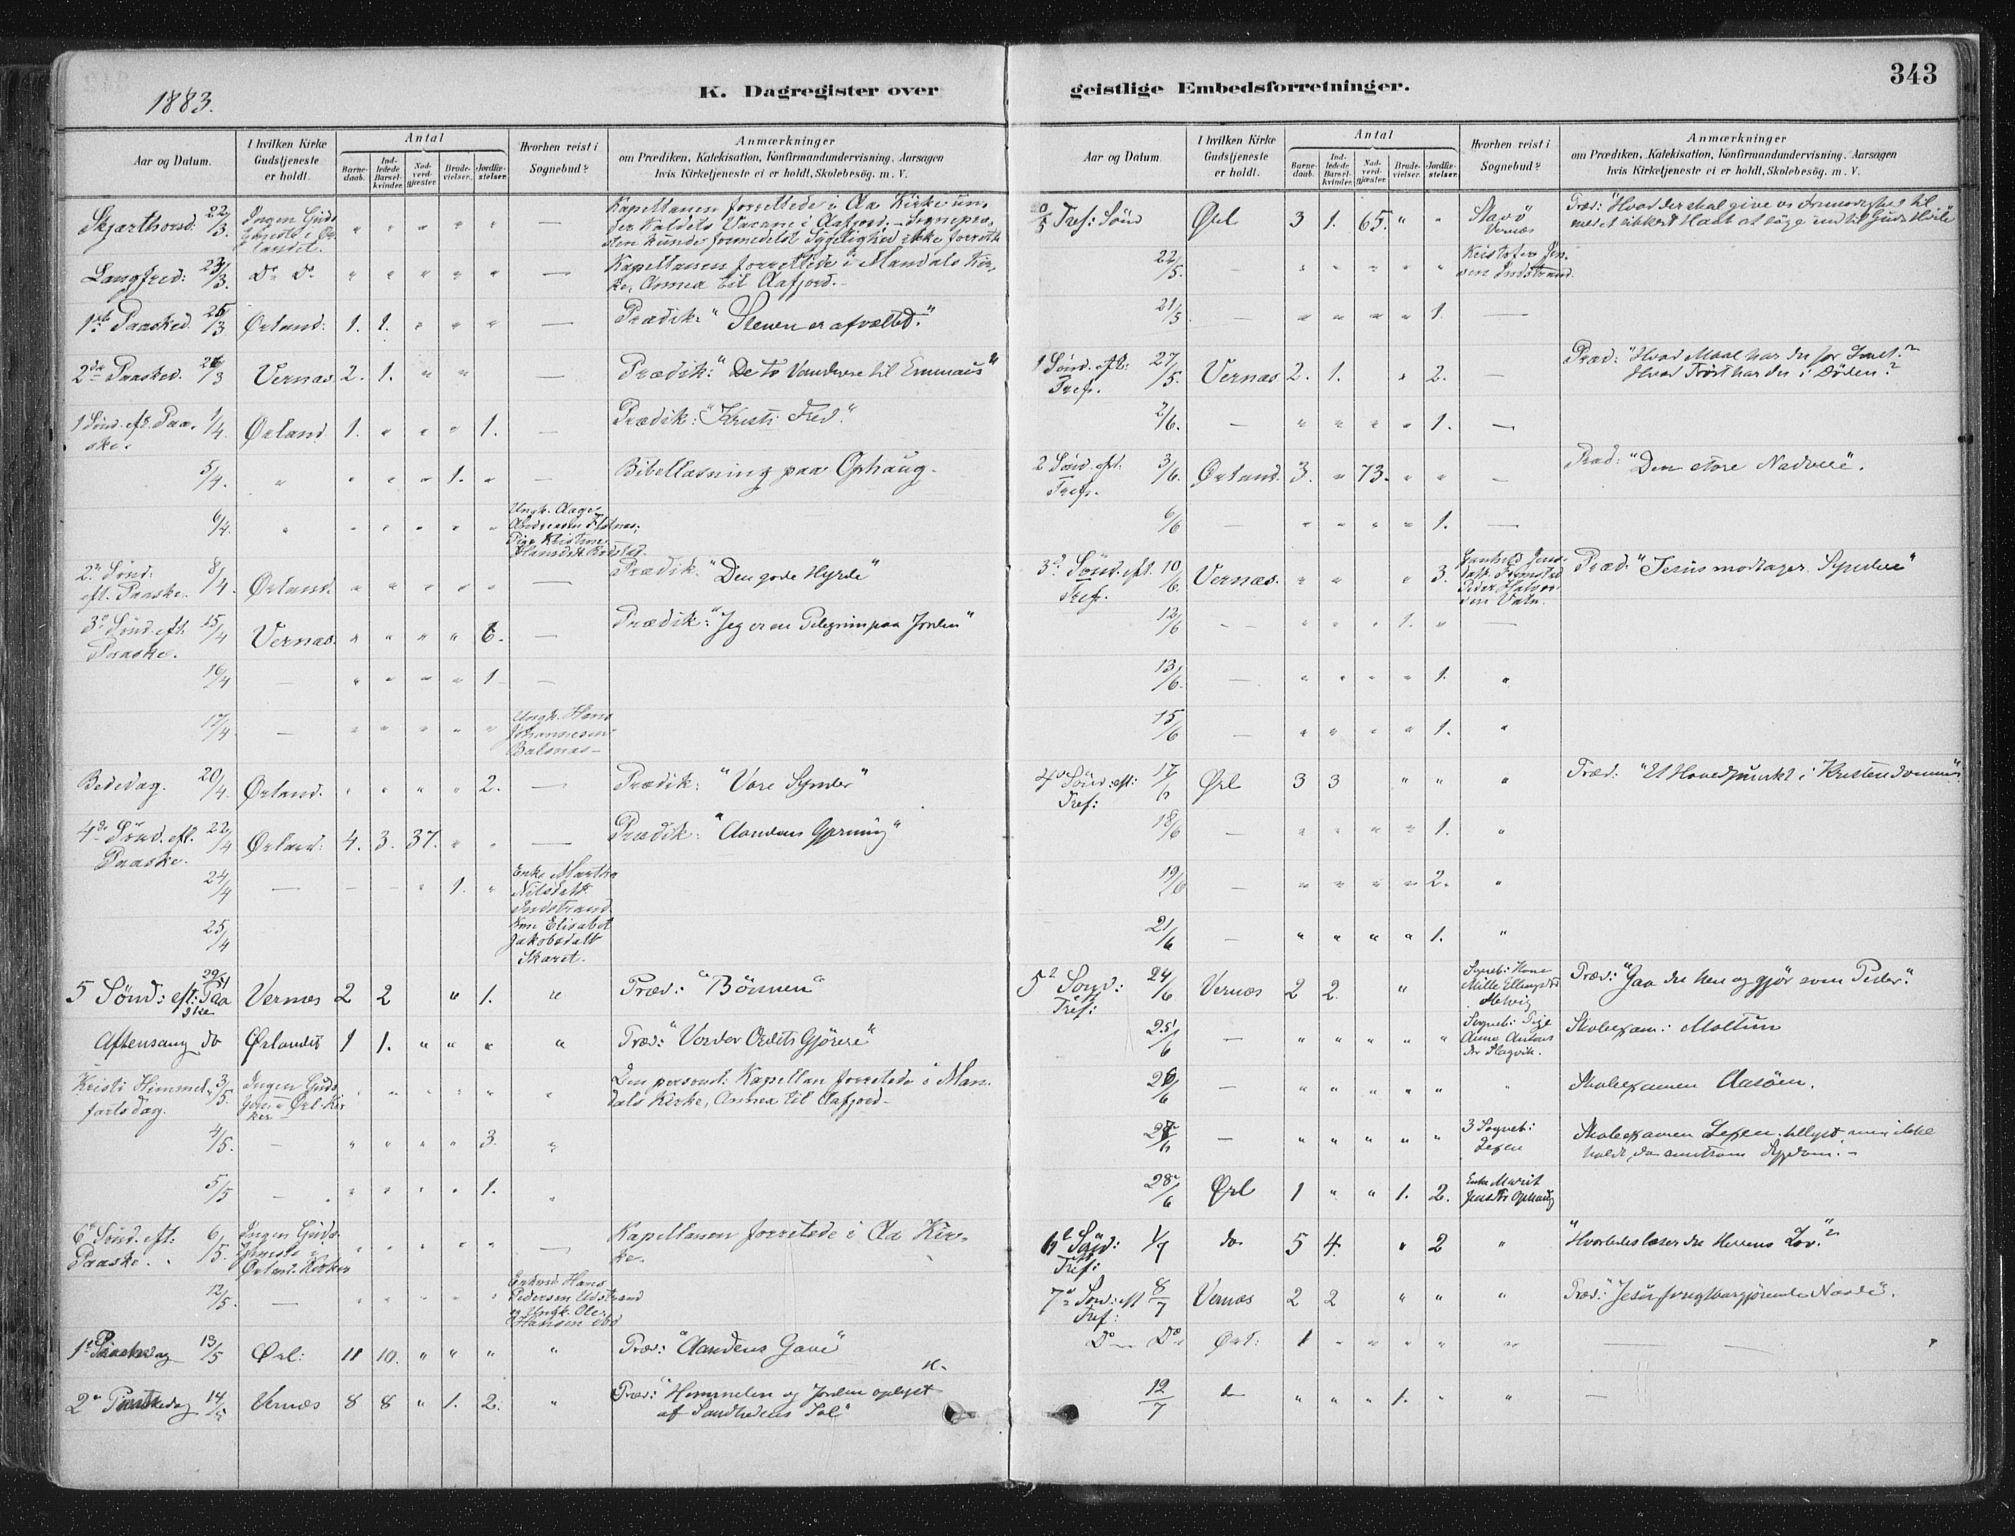 1883.
K. Dagregister over
geistlige Embedsforretninger.
343
Aar og Datum.
I hvilken Kirke Gudstjeneste er holdt.
Antal
Barnedaab.
Indledede Barselkvinder.
Nadverdgjæster.
Brudevielser.
Jordfæstelser.
Hvorhen reist i Sognebud?
Anmærkninger
om Prædiken, Katekisation, Konfirmandundervisning, Aarsagen
hvis Kirketjeneste ei er holdt, Skolebesøg. m. V.
Skjærthorsd: 22/3 Ingen Guds tjeneste i Ørlandet. " " " " " — Kapellanen forrettede i Aa Kirke un-
der Kaldets Vacance i Aafjord. — Sognepræ-
sten kunde formedelst Sygelighed ikke forrette
Langfred: 23/3. Do Do " " " " " — Kapellanen forrettede i Mandals Kir-
ke, Annex til Aafjord. —
1ste Paasked. 25/3 Ørland: 1. 1. " " " — Prædik: "Stenen er afvæltet."
2den Paasked. 26/3 Vernæs. 2. 1. " " — Prædik: "De to Vandrere til Emmaus"
1 Sønd. eft. Paaske. 1/4. Ørland 1. " " " 1. — Prædik: "Kristi Fred".
5/4. " " " " 1. " — Bibellæsning paa Ophaug.
6/4 " " " " " " Ungk. Aage
Andreasen
Pige Kristine
Hansdtr
2den Sønd: eft. Paaske. 8/4. Ørland. " " " " " — Prædik. "Den gode Hyrde"
3de Sønd. eft Paaske. 15/4 Vernæs. " " " " 6. — Prædik: "Jeg er en Pelegrim paa Jorden"
16/4 — " " " " 1 —
17/4 — " " " " " Ungk. Hans
Johannesen
Balsnæs —
Bededag. 20/4. Ørland. " " " " 2. — Prædik: "Vore Synder"
4de Sønd. eft. Paaske. 22/4 Ørland: 4. 3. 37. " " — Prædik: "Aandens Gjerning"
24/4 — — — " 1. " Enke Martha
Nilsdatt.
Indstrand.
25/4 Kone Elisabet
Jakobsdatt
Skaret.
5 Sønd: eft: Paaske 29/4 Vernæs 2 2 " 1. " Præd: "Bönnen"
Aftensang do Ørlandet 1 1. " " " " Præd: "Vorder Ordets Gjörere"
Kristi Himmelfartsdag. 3/5. Ingen Guds tjen: i Ørl. Kirker " " " " " " Den personl: Kapellan forrettede i Man-
dals Kirke, Annex til Aafjord —
4/5. — " " " " 3. "
5/5 — " " " " 1. "
6te Sønd. eft: Paaske. 6/5. Ingen Gudstjeneste i Ørland. Kirker " " " " " — Kapellanen forrettede i Aa Kir-
ke.
12/5. — " " " " " Hans
Pedersen Udstrand
og Ungk. Ole
Hansen ibd
1ste 13/5 Ørl: 11 10. " " " " Præd: "Aandens Gave"
2den 14/5 Vernæs 8 8 " 1. 2. " Præd: "Himmelen og Jorden oplyst
af Sandhedens Sol"
Aar og Datum.
I hvilken Kirke Gudstjeneste er holdt.
Antal
Barnedaab.
Indledede Barselkvinder.
Nadverdgjæster.
Brudevielser.
Jordfæstelser.
Hvorhen reist i Sognebud?
Anmærkninger
om Prædiken, Katekisation, Konfirmandundervisning, Aarsagen
hvis Kirketjeneste ei er holdt, Skolebesøg. m. V.
20/5 Tref: Sönd Ørl 3 1. 65. " " Vernæs Præd: "Hvad der skal give os Frimodighed til
med et sikkert Haab at
22/5. — " " " " " Kristofer Jensen Indstrand.
21/5. — " " " " 1. —
1 Sönd. eft: Tref. 27/5. Vernæs 2. 1. " 2. — Præd: "Hvad Maal har du for Livet?
Hvad Trøst har du i Døden?"
2/6. — " " " " 1. —
2 Sönd. eft. Tref. 3/6. Ørland. 3. " 73. " " — Præd: "Den store Nadvere".
6/6 — " " " " 1. —
3de Sönd. eft. Tref. 10/6. Vernæs. " " " 3. Præd: "Jesus modtager Syndere"
12/6 — " " " 1. " —
13/6. — " " " " 1. "
15/6 — " " " " 1. "
4de Sönd: eft: Tref: 17/6 Ørl 3 3 " " " Præd: "Et Hovedpunkt i Kristendommen"
18/6 — " " " " 1. "
19/6 — " " " " 2. "
21/6 — " " " " 1. "
5te Sönd: eft Tref: 24/6 Vernæs 2 2. " Sogneb: Kone Præd: "Gaa du hen og gjör som Peder".
25/6 — " " " " " Sogneb: Pige
Anna Skoleexam: Moltun
26/6 — " " " " " " Skoleexamen Aasöen.
27/6 — " " " " " 3 Sogneb: Skoleexamen tillyst, men ikke
holdt, da Sygdom. —
28/6 Ørl 1 " " 1. 2. Enke Marit
Ophaug
6te Sönd: eft Tref: 1/7 do 5 4. " 2 " "Hvorledes læser du Herrens Lov?"
7de Sönd: eft Tref: 8/7 Vernæs 2 2 " " " Præd: "Jesu Naade".
Do — Do Ørl: 1 " " " " " —
12/7 do " " " 1. " " —